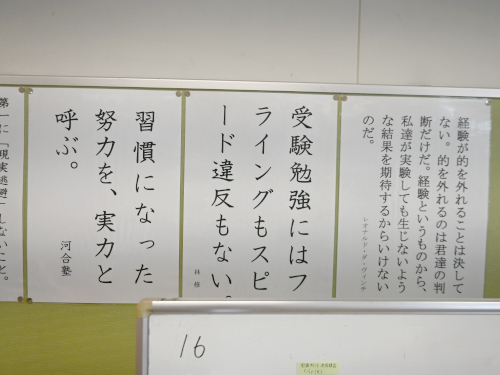 経験が的を外れることは決して
ない。的を外れるのは君達の判
断だけだ。経験というものから、
私達が実験しても生じないよう
な結果を期待するからいけない
のだ。
レオナルド・ダ・ヴィンチ
受験勉強にはフ
ライングもスピ
ード違反もない。
林 修
習慣になった
努力を、実力と
呼ぶ。
河合塾
第一に「現実逃避」しないこと。
16